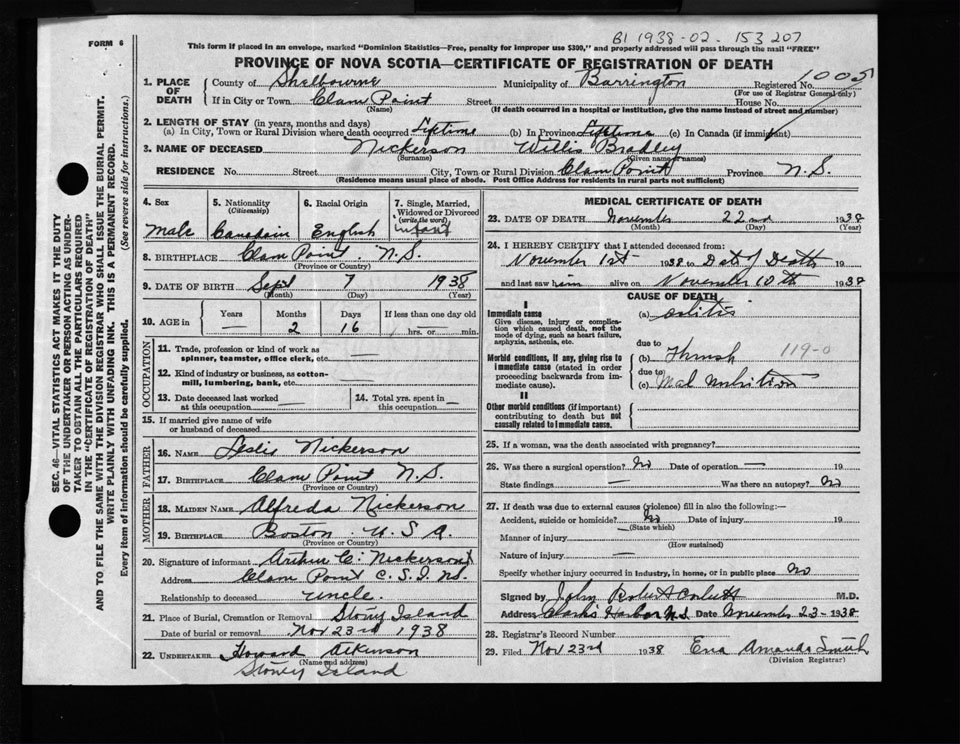 B1 1938-02-153207
FORM 6
This form if placed in an envelope, marked "Dominion Statistics—Free, penalty for improper use $300," and properly addressed will pass through the mail "FREE"
PROVINCE OF NOVA SCOTIA—CERTIFICATE OF REGISTRATION OF DEATH
1. PLACE OF DEATH County of Shelbourne Municipality of Barrington Registered No. 1005
(For use of Registrar General only)
If in City or Town Clam Point Street House No.
(Name) (If death occurred in a hospital or institution, give the name instead of street and number)
2. LENGTH OF STAY (in years, months and days)
(a) In City, Town or Rural Division where death occurred Lifetime (b) In Province Lifetime (c) In Canada (if immigrant)
3. NAME OF DECEASED Nickerson Willis Bradley
(Surname) (Given name or names)
RESIDENCE No. Street City, Town or Rural Division Clam Point Province N.S.
(Residence means usual place of abode. Post Office Address for residents in rural parts not sufficient)
SEC. 46—VITAL STATISTICS ACT MAKES IT THE DUTY
OF THE UNDERTAKER OR PERSON ACTING AS UNDER-
TAKER TO OBTAIN ALL THE PARTICULARS REQUIRED
IN THE "CERTIFICATE OF REGISTRATION OF DEATH"
AND TO FILE THE SAME WITH THE DIVISION REGISTRAR WHO SHALL ISSUE THE BURIAL PERMIT.
WRITE PLAINLY WITH UNFADING INK. THIS IS A PERMANENT RECORD.
Every item of information should be carefully supplied. (See reverse side for instructions.)
4. Sex 5. Nationality (Citizenship) 6. Racial Origin 7. Single, Married, Widowed or Divorced (write the word)
Male Canadain English infant
8. BIRTHPLACE Clam Point N.S.
(Province or Country)
9. DATE OF BIRTH Sept 7 1938
(Month) (Day) (Year)
10. AGE in Years Months Days If less than one day old
— 2 16 hrs. or min.
OCCUPATION
11. Trade, profession or kind of work as spinner, teamster, office clerk, etc. —
12. Kind of industry or business, as cotton-mill, lumbering, bank, etc. —
13. Date deceased last worked at this occupation — 14. Total yrs. spent in this occupation —
15. If married give name of wife or husband of deceased
FATHER
16. NAME Leslie Nickerson
17. BIRTHPLACE Clam Point N.S.
(Province or Country)
MOTHER
18. MAIDEN NAME Alfreda Nickerson
19. BIRTHPLACE Boston U.S.A.
(Province or Country)
20. Signature of informant Arthur C. Nickerson
Address Clam Point C.S.I. NS.
Relationship to deceased uncle.
21. Place of Burial, Cremation or Removal Stony Island
Date of burial or removal Nov 23rd 1938
22. UNDERTAKER Howard Atkinson
(Name and address)
Stoney Island
MEDICAL CERTIFICATE OF DEATH
23. DATE OF DEATH November 22nd 1938
(Month) (Day) (Year)
24. I HEREBY CERTIFY that I attended deceased from:
November 1st 1938 to Dat of Death 19
and last saw him alive on November 10th 1938
CAUSE OF DEATH
I
Immediate cause (a)
Give disease, injury or complication which caused death, not the mode of dying, such as heart failure, asphyxia, asthenia, etc.
due to
Morbid conditions, if any, giving rise to immediate cause (stated in order proceeding backwards from immediate cause). (b) Thrush 119-0
due to
(c) Mal nutrition
II
Other morbid conditions (if important) contributing to death but not causally related to immediate cause.
25. If a woman, was the death associated with pregnancy?
26. Was there a surgical operation? No Date of operation — 19
State findings — Was there an autopsy? No
27. If death was due to external causes (violence) fill in also the following:—
Accident, suicide or homicide? No Date of injury 19
(State which)
Manner of injury —
(How sustained)
Nature of injury —
Specify whether injury occurred in industry, in home, or in public place No
Signed by John Robert Corbett M.D.
Address Clarks Harbor N.S. Date November 23-1938
28. Registrar's Record Number
29. Filed Nov 23rd 1938 Ena Amanda Smith
(Division Registrar)